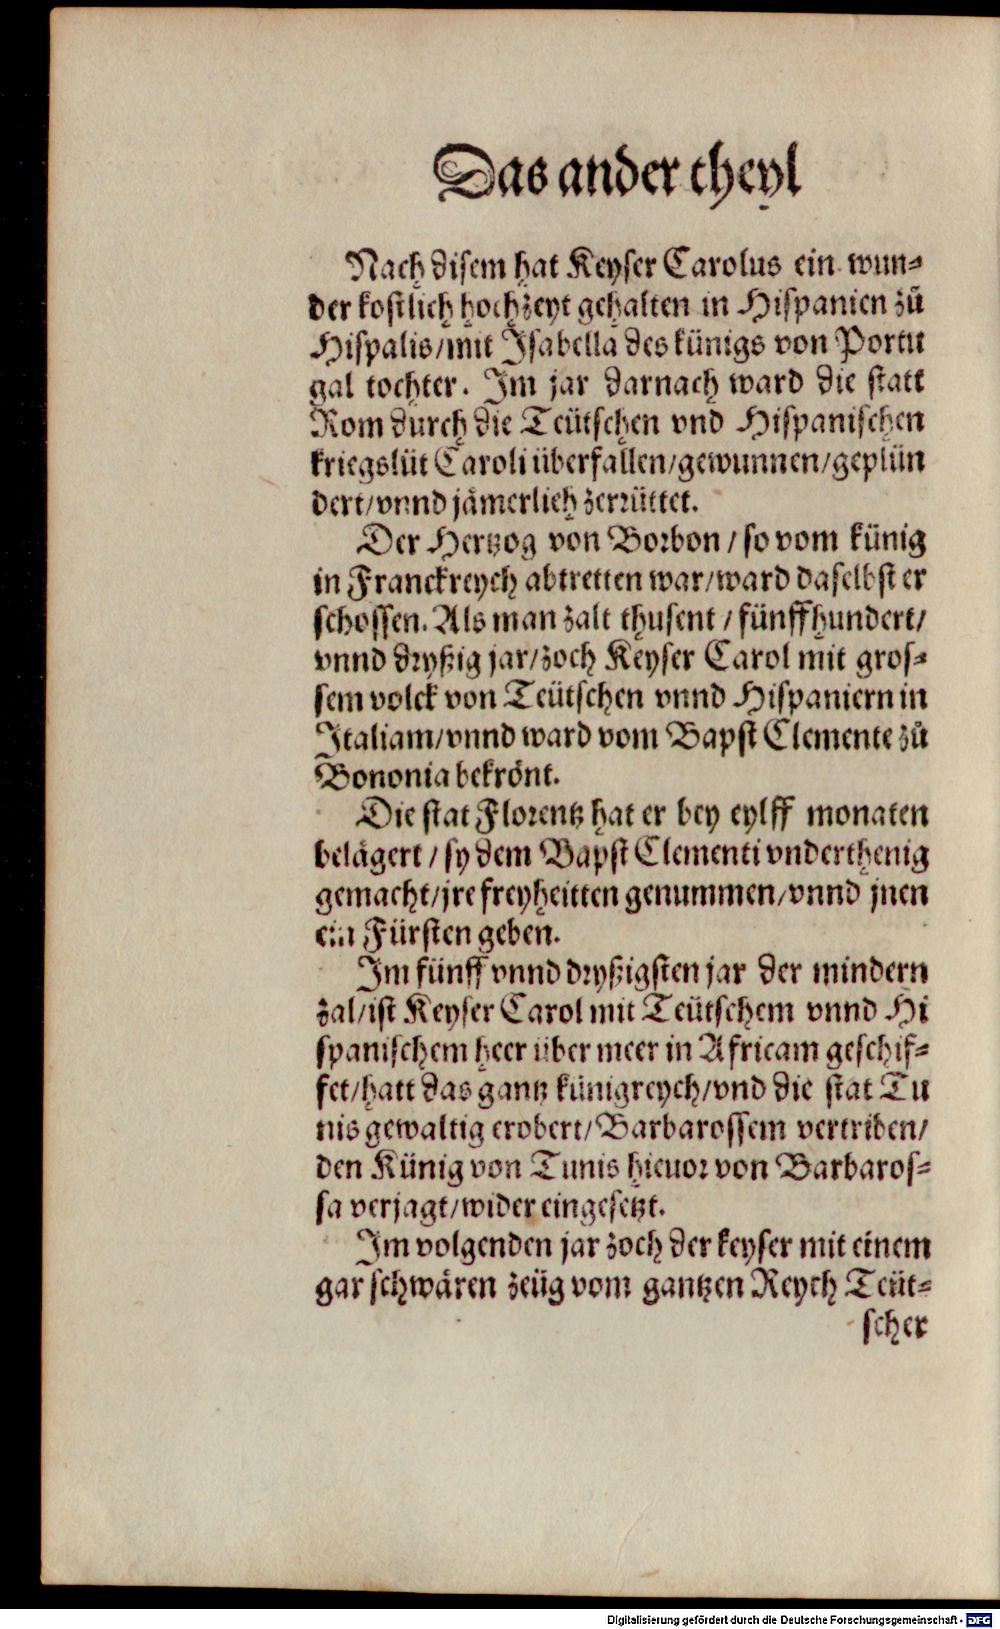 Das ander theyl
Nach disem hat Keyser Carolus ein wun⸗
der kostlich hochzeyt gehalten in Hispanien zů
Hispalis/mit Isabella des künigs von Portu
gal tochter. Im jar darnach ward die statt
Rom durch die Teütschen vnd Hispanischen
kriegslüt Caroli überfallen/gewunnen/geplün
dert/vnnd jämerlich zerrüttet.
Der Hertzog von Borbon / so vom künig
in Franckreych abtretten war/ward daselbst er
schossen. Als man zalt thusent / fünffhundert/
vnnd dryßig jar/zoch Keyser Carol mit gros⸗
sem volck von Teütschen vnnd Hispaniern in
Italiam/vnnd ward vom Bapst Clemente zů
Bononia bekrönt.
Die stat Florentz hat er bey eylff monaten
belägert / sy dem Bapst Clementi vnderthenig
gemacht/jre freyheitten genummen/vnnd jnen
ein Fürsten geben.
Im fünff vnnd dryßigsten jar der mindern
zal/ist Keyser Carol mit Teütschem vnnd Hi
spanischem heer über meer in Africam geschif⸗
fet/hatt das gantz künigreych/vnd die stat Tu
nis gewaltig erobert/Barbarossem vertriben/
den Künig von Tunis hieuor von Barbaros⸗
sa verjagt/wider eingesetzt.
Im volgenden jar zoch der keyser mit einem
gar schwären zeüg vom gantzen Reych Teüt⸗
scher
Digitalisierung gefördert durch die Deutsche Forschungsgemeinschaft - DFG